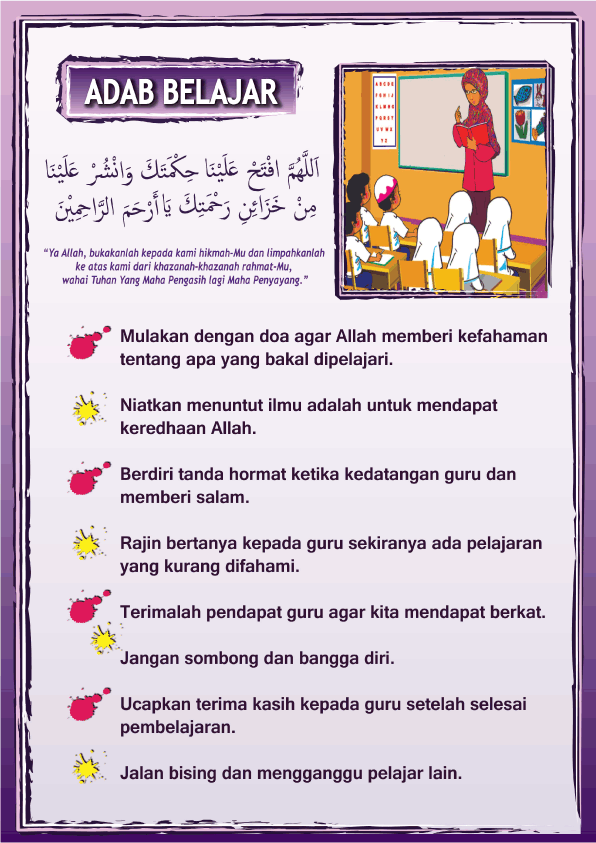 ADAB BELAJAR
اَللَّهُمَّ افْتَحْ عَلَيْنَا حِكْمَتَكَ وَانْشُرْ عَلَيْنَا
مِنْ خَزَائِنِ رَحْمَتِكَ يَا أَرْحَمَ الرَّاحِمِيْنَ
“Ya Allah, bukakanlah kepada kami hikmah-Mu dan limpahkanlah
ke atas kami dari khazanah-khazanah rahmat-Mu,
wahai Tuhan Yang Maha Pengasih lagi Maha Penyayang.”
Mulakan dengan doa agar Allah memberi kefahaman
tentang apa yang bakal dipelajari.
Niatkan menuntut ilmu adalah untuk mendapat
keredhaan Allah.
Berdiri tanda hormat ketika kedatangan guru dan
memberi salam.
Rajin bertanya kepada guru sekiranya ada pelajaran
yang kurang difahami.
Terimalah pendapat guru agar kita mendapat berkat.
Jangan sombong dan bangga diri.
Ucapkan terima kasih kepada guru setelah selesai
pembelajaran.
Jalan bising dan mengganggu pelajar lain.